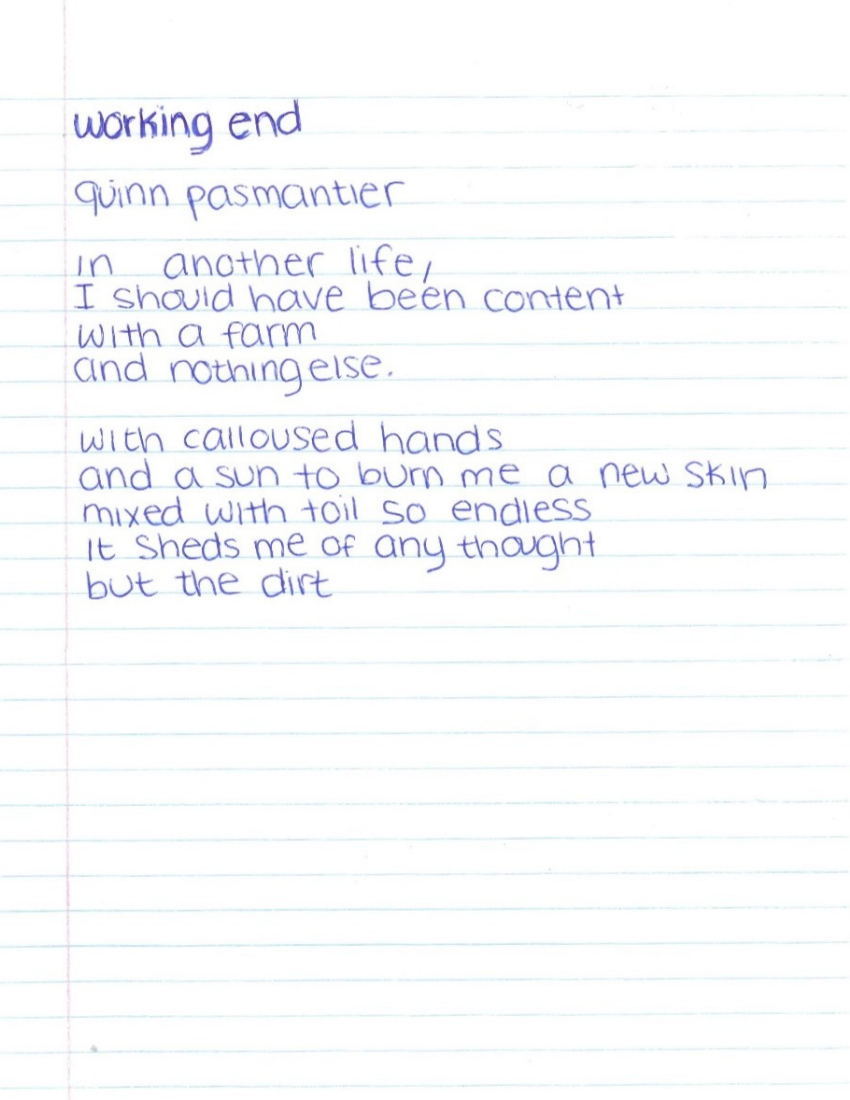 working end
quinn pasmantier
in another life,
I should have been content
with a farm
and nothing else.
with calloused hands
and a sun to burn me a new skin
mixed with toil so endless
it sheds me of any thought
but the dirt